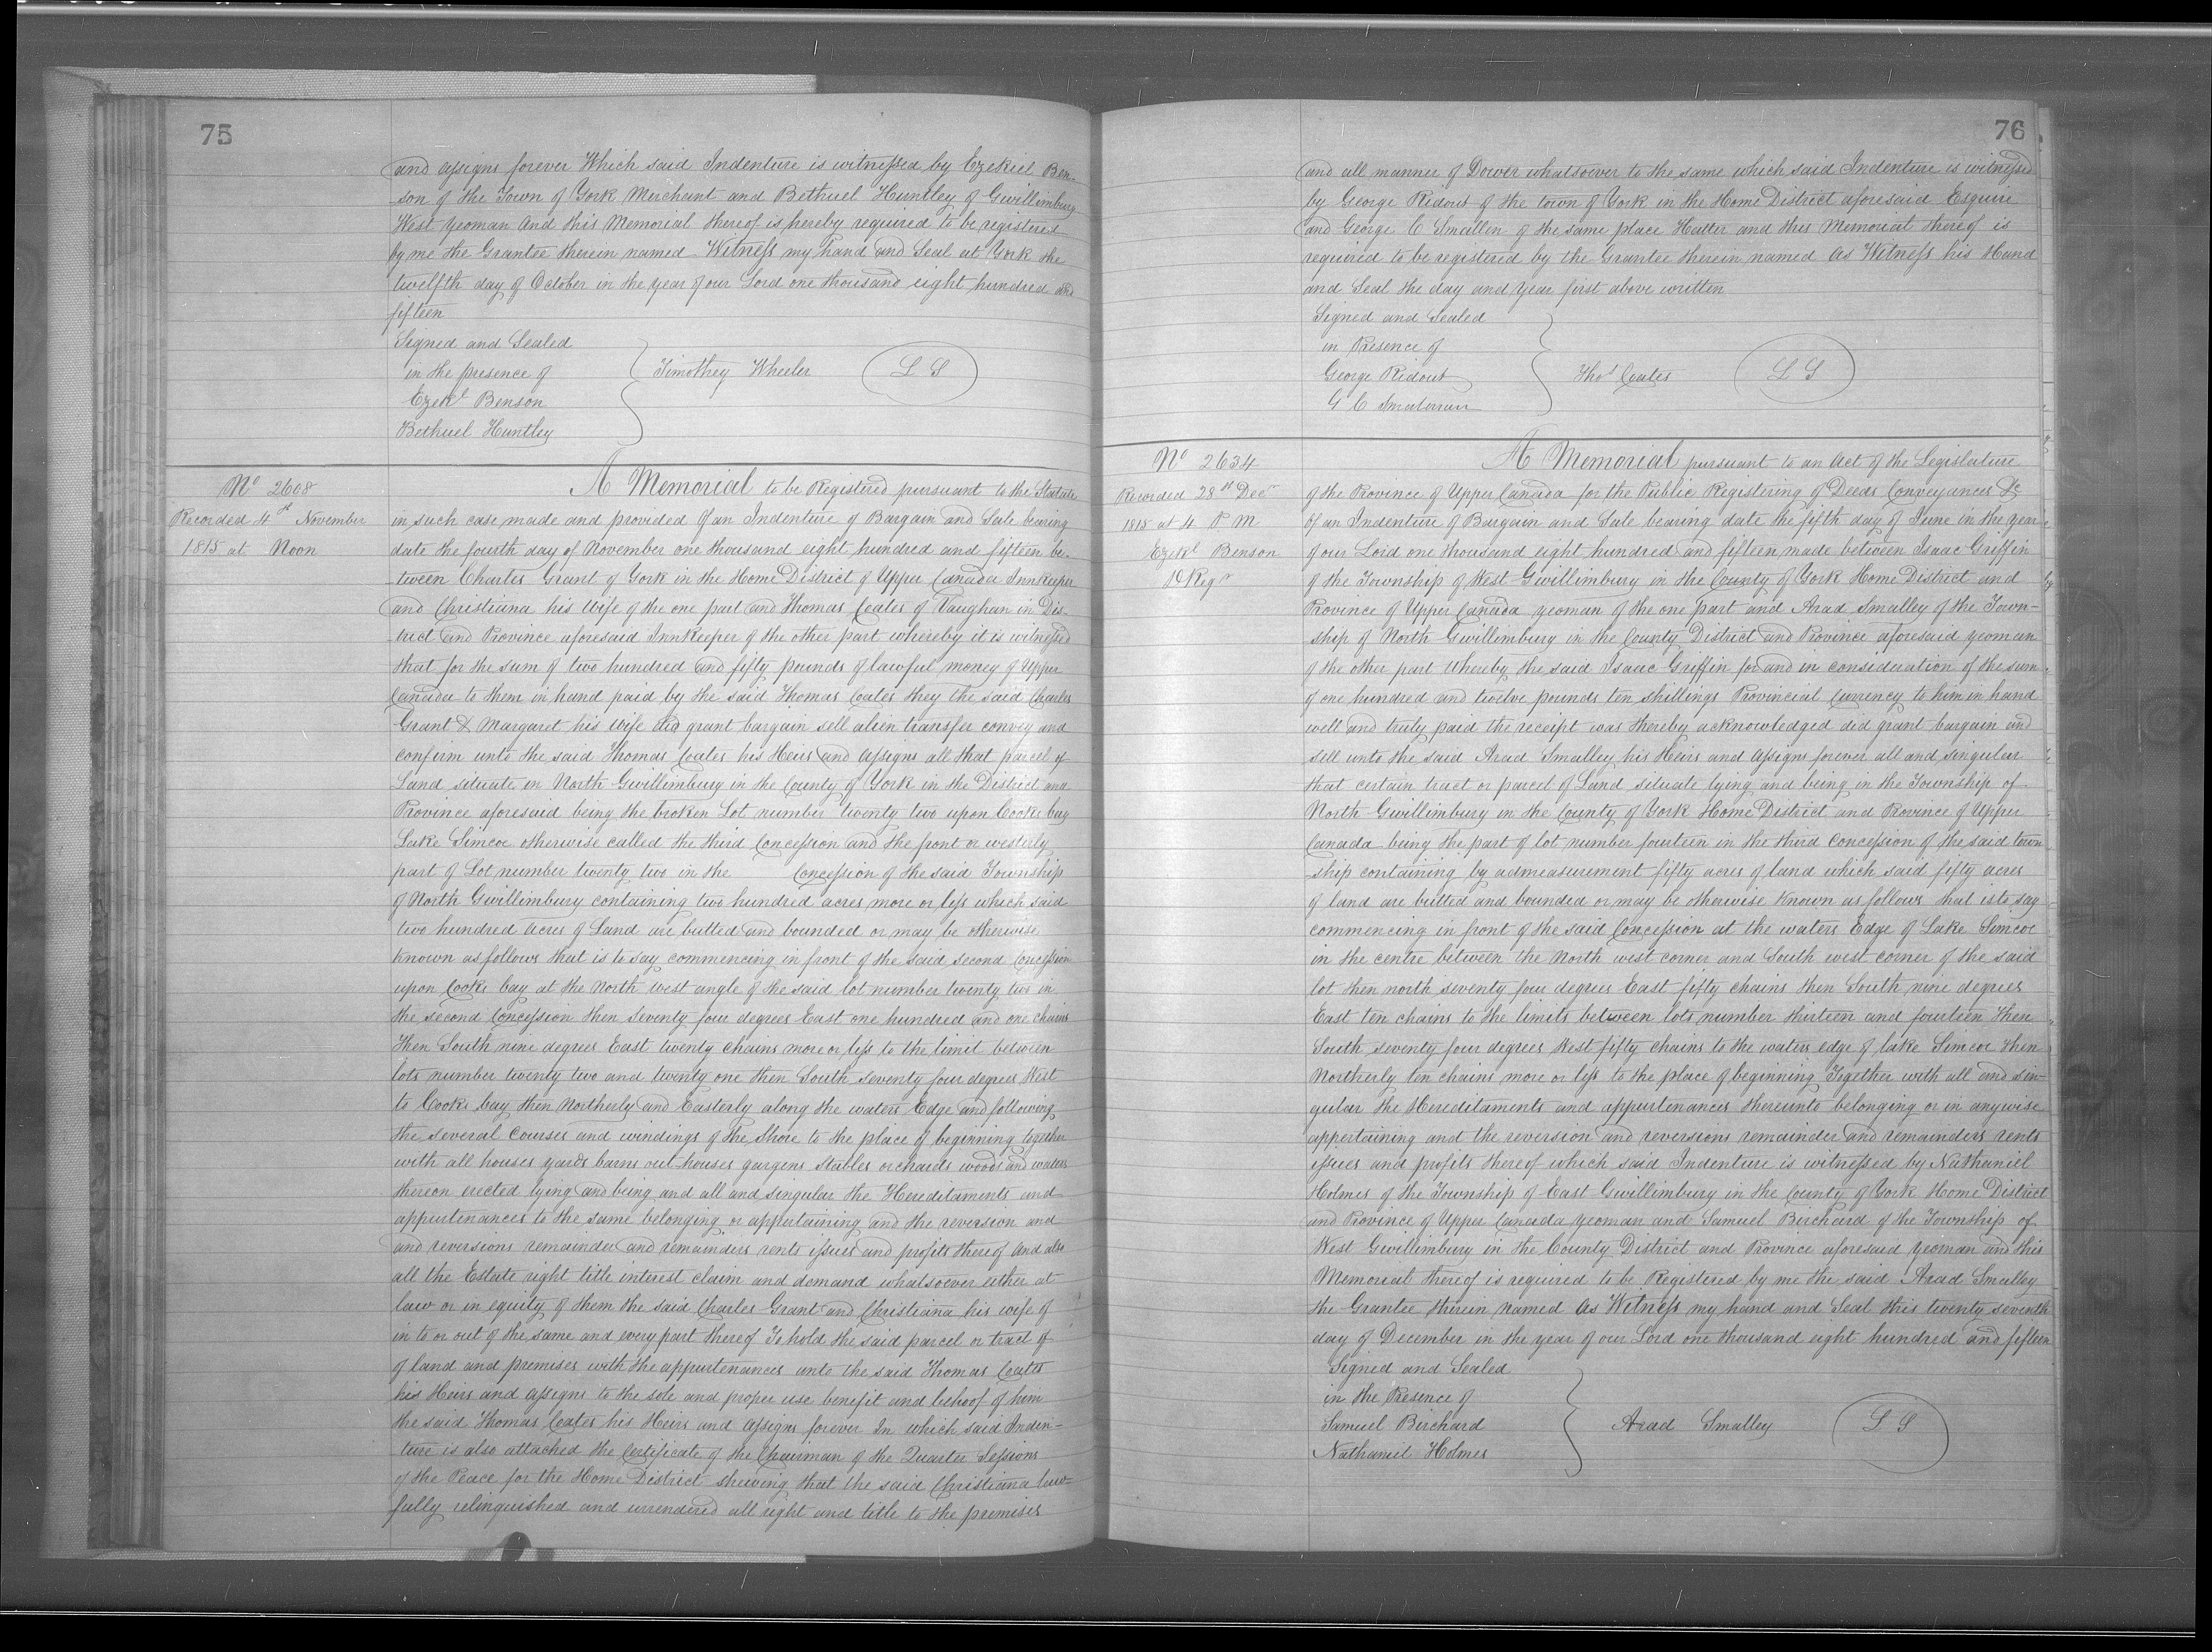 75
and assigns forever Which said Indenture is witnessed by Ezekiel Ben-
son of the Town of York Merchant and Bethuel Huntley of Gwillimbury
West yeoman And this Memorial thereof is hereby required to be registered
by me the Grantee therein named Witness my hand and Seal at York the
twelfth day of October in the year of our Lord one thousand eight hundred and
fifteen
Signed and Sealed
in the presence of
Ezekl Benson
Bethuel Huntley
Timothey Wheeler
L S
No 2608
Recorded 4th November
1815 at Noon
A Memorial to be Registered pursuant to the Statute
in such case made and provided Of an Indenture of Bargain and Sale bearing
date the fourth day of November one thousand eight hundred and fifteen be-
tween Charles Grant of York in the Home District of Upper Canada Innkeeper
and Christiana his Wife of the one part and Thomas Coates of Vaughan in Dis-
trict and Province aforesaid Innkeeper of the other part whereby it is witnessed
that for the sum of two hundred and fifty pounds of lawful money of Upper
Canada to them in hand paid by the said Thomas Coates they the said Charles
Grant & Margaret his wife did grant bargain sell alein transfer convey and
confirm unto the said Thomas Coates his Heirs and Assigns all that parcel of
Land situate in North Gwillimbury in the County of York in the District and
Province aforesaid being the broken Lot number twenty two upon Cooks bay
Lake Simcoe otherwise called the third Concession and the front or westerly
part of Lot number twenty two in the Concession of the said Township
of North Gwillimbury containing two hundred acres more or less which said
two hundred acres of Land are butted and bounded or may be otherwise
known as follows that is to say commencing in front of the said second Concession
upon Cooks bay at the North west angle of the said lot number twenty two in
the second Concession then seventy four degrees East one hundred and one chains
then South nine degrees East twenty chains more or less to the limit between
lots number twenty two and twenty one then South seventy four degrees West
to Cooks bay then Northerly and Easterly along the waters Edge and following
the several Courses and windings of the Shore to the place of beginning together
with all houses yards barns out-houses gargens stables orchards woods and waters
thereon erected lying and being and all and singular the Hereditaments and
appurtenances to the same belonging or appertaining and the reversion and
and reversions remainder and remainders rents issues and profits thereof And also
all the Estate right title interest claim and demand whatsoever either at
law or in equity of them the said Charles Grant and Christiana his wife of
in to or out of the same and every part thereof To hold the said parcel or tract of
of land and premises with the appurtenances unto the said Thomas Coates
his Heirs and assigns to the sole and proper use benefit and behoof of him
the said Thomas Coates his Heirs and Assigns forever In which said Inden-
ture is also attached the Certificate of the Chairman of the Quarter Sessions
of the Peace for the Home District shewing that the said Christiana law-
fully relinquished and surrendered all right and title to the premises
76
and all manner of Dower whatsoever to the same which said Indenture is witnessed
by George Ridout of the town of York in the Home District aforesaid Esquire
and George C Smallen of the same place Hatter and this Memorial thereof is
required to be registered by the Grantee therein named As Witness his Hand
and Seal the day and year first above written
Signed and Sealed
in Presence of
George Ridout
G C
Thos Coates
L S
No 2634
Recorded 28th Decr
1815 at 4 P M
Ezekl Benson
D Regr
A Memorial pursuant to an Act of the Legislature
of the Province of Upper Canada for the Public Registering of Deeds Conveyances &c
Of an Indenture of Bargain and Sale bearing date the fifth day of June in the year
of our Lord one thousand eight hundred and fifteen made between Isaac Griffin
of the Township of West Gwillimbury in the County of York Home District and
Province of Upper Canada yeoman of the one part and Arad Smalley of the Town-
ship of North Gwillimbury in the County District and Province aforesaid yeoman
of the other part Whereby the said Isaac Griffin for and in consideration of the sum
of one hundred and twelve pounds ten shillings Provincial Currency to him in hand
well and truly paid the receipt was thereby acknowledged did grant bargain and
sell unto the said Arad Smalley his Heirs and Assigns forever all and singular
that certain tract or parcel of Land situate lying and being in the Township of
North Gwillimbury in the County of York Home District and Province of Upper
Canada being the part of lot number fourteen in the third Concession of the said town
ship containing by admeasurement fifty acres of land which said fifty acres
of land are butted and bounded or may be otherwise Known as follows that is to say
commencing in front of the said Concession at the waters Edge of Lake Simcoe
in the centre between the North west corner and South west corner of the said
lot then north seventy four degrees East fifty chains then South nine degrees
East ten chains to the limits between lots number thirteen and fourteen then
South seventy four degrees West fifty chains to the waters edge of lake Simcoe then
Northerly ten chains more or less to the place of beginning Together with all and sin-
gular the Hereditaments and appurtenances thereunto belonging or in anywise
appertaining and the reversion and reversions remainder and remainders rents
issues and profits thereof which said Indenture is witnessed by Nathaniel
Holmes of the Township of East Gwillimbury in the County of York Home District
and Province of Upper Canada yeoman and Samuel Birchard of the Township of
West Gwillimbury in the County District and Province aforesaid yeoman and this
Memorial thereof is required to be Registered by me the said Arad Smalley
the Grantee therein named As Witness my hand and Seal this twenty seventh
day of December in the year of our Lord one thousand eight hundred and fifteen
Signed and Sealed
in the Presence of
Samuel Birchard
Nathaniel Holmes
Arad Smalley
L S